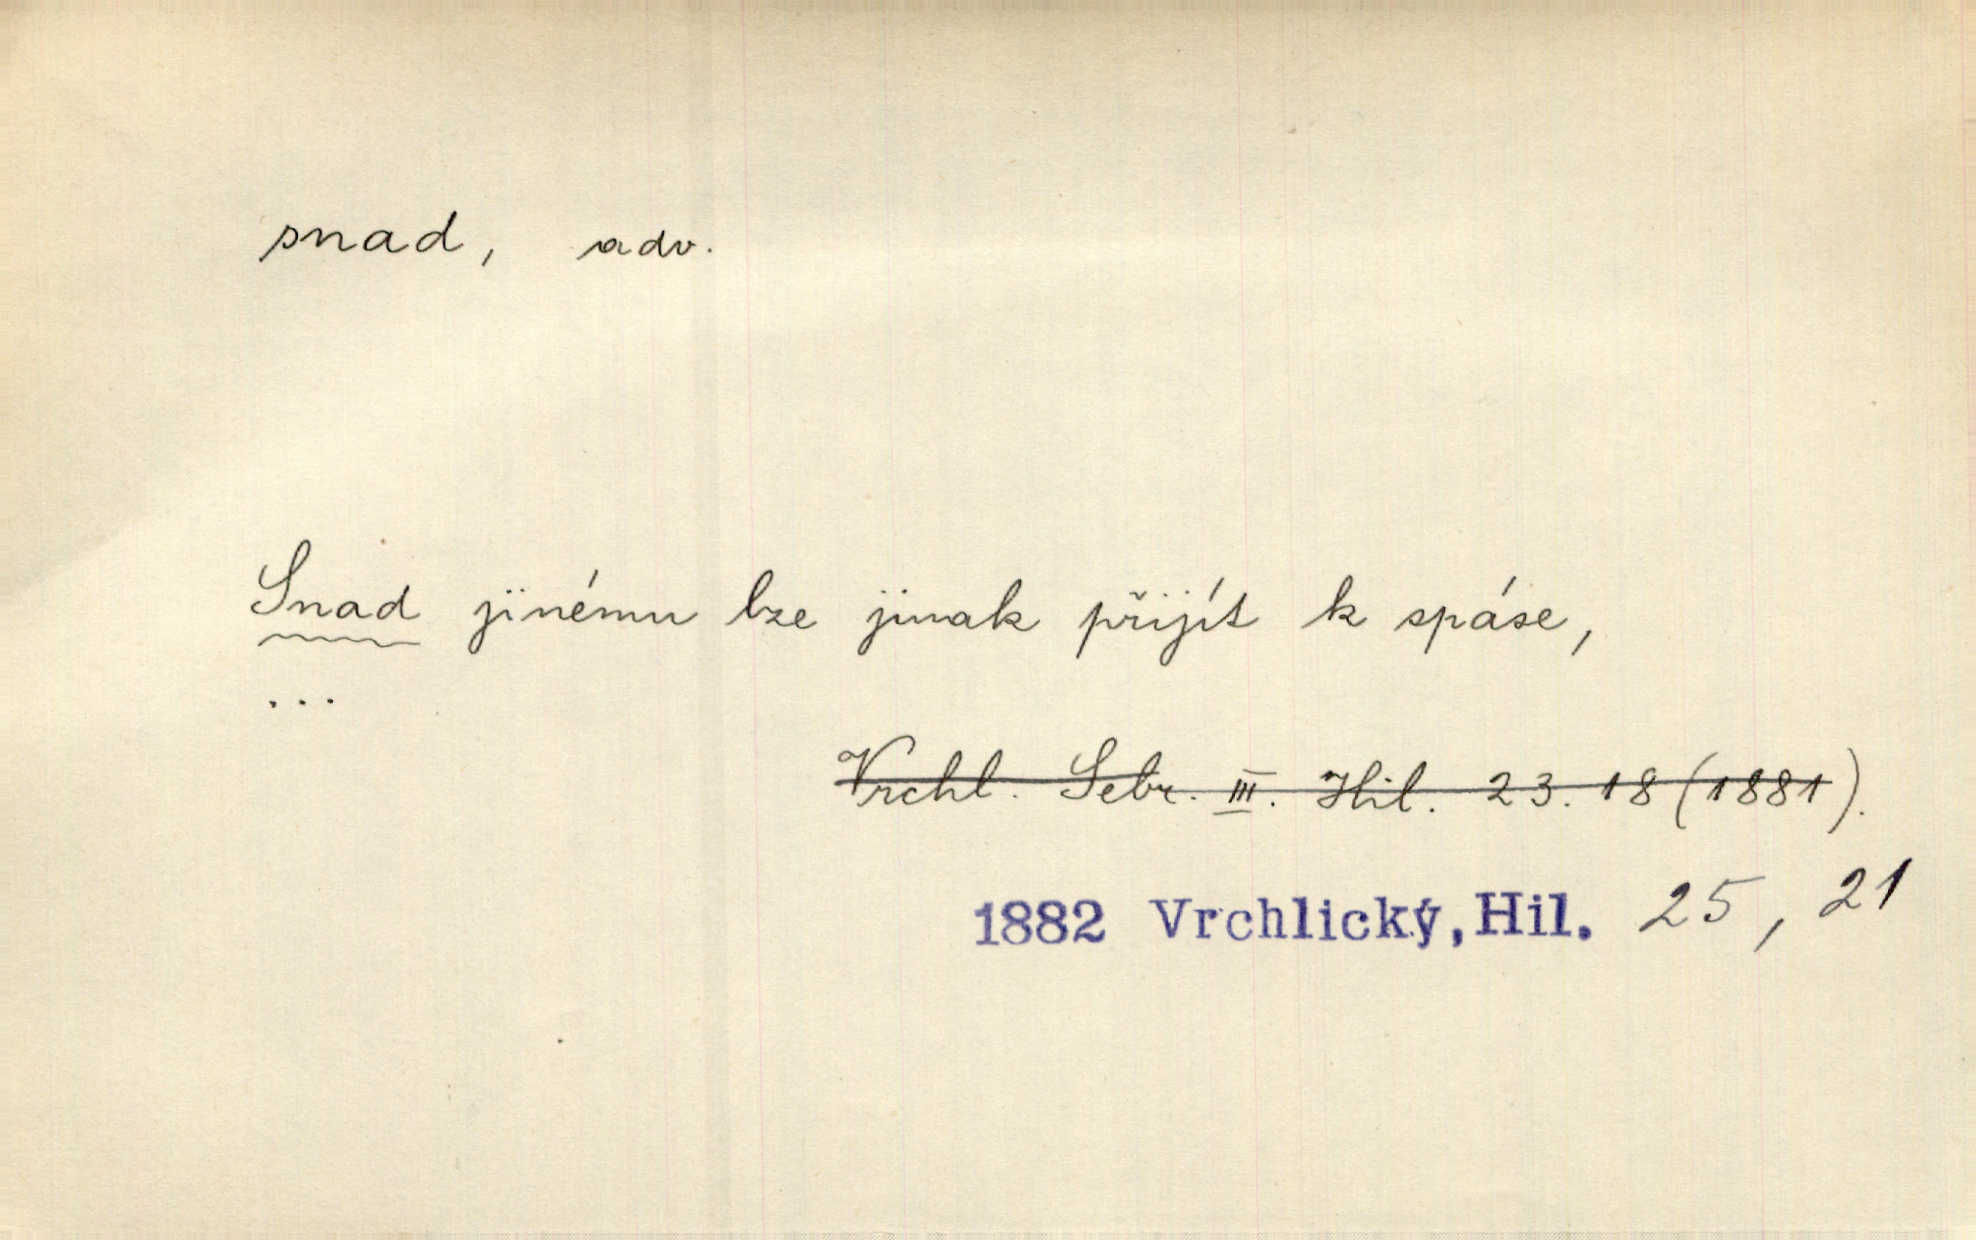 snad, adv.
Snad jinému lze jinak přijít k spáse,
...
Vrchl. Sebr. III. Hil. 23. 18 (1881).
1882 Vrchlický, Hil. 25, 21